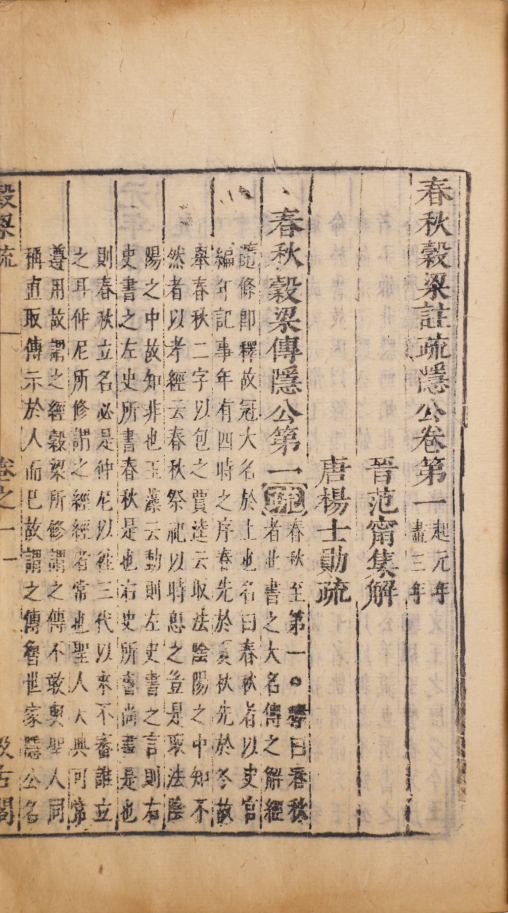 春秋穀梁註疏隱公卷第一起元年盡三年
晉范甯集解
唐楊士勛疏
春秋穀梁傳隱公第一疏春秋至第一○釋曰春秋
者此書之大名傳之解經
隨條即釋故冠大名於上也名曰春秋者以史官
編年記事年有四時之序春先於夏秋先於冬故
舉春秋二字以包之賈逵云取法陰陽之中知不
然者以孝經云春秋祭祀以時思之豈是取法陰
陽之中故知非也玉藻云動則左史書之言則右
史書之左史所書春秋是也右史所書尚書是也
則春秋立名必是仲尼以往三代以來不審誰立
之耳仲尼所修謂之經經者常也聖人大典可常
遵用故謂之經穀梁所修謂之傳不敢與聖人同
稱直取傳示於人而已故謂之傳魯世家隱公名
穀梁疏 卷之一 一 汲古閣